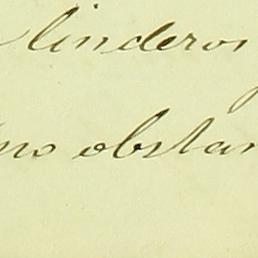 linderos
no obstan